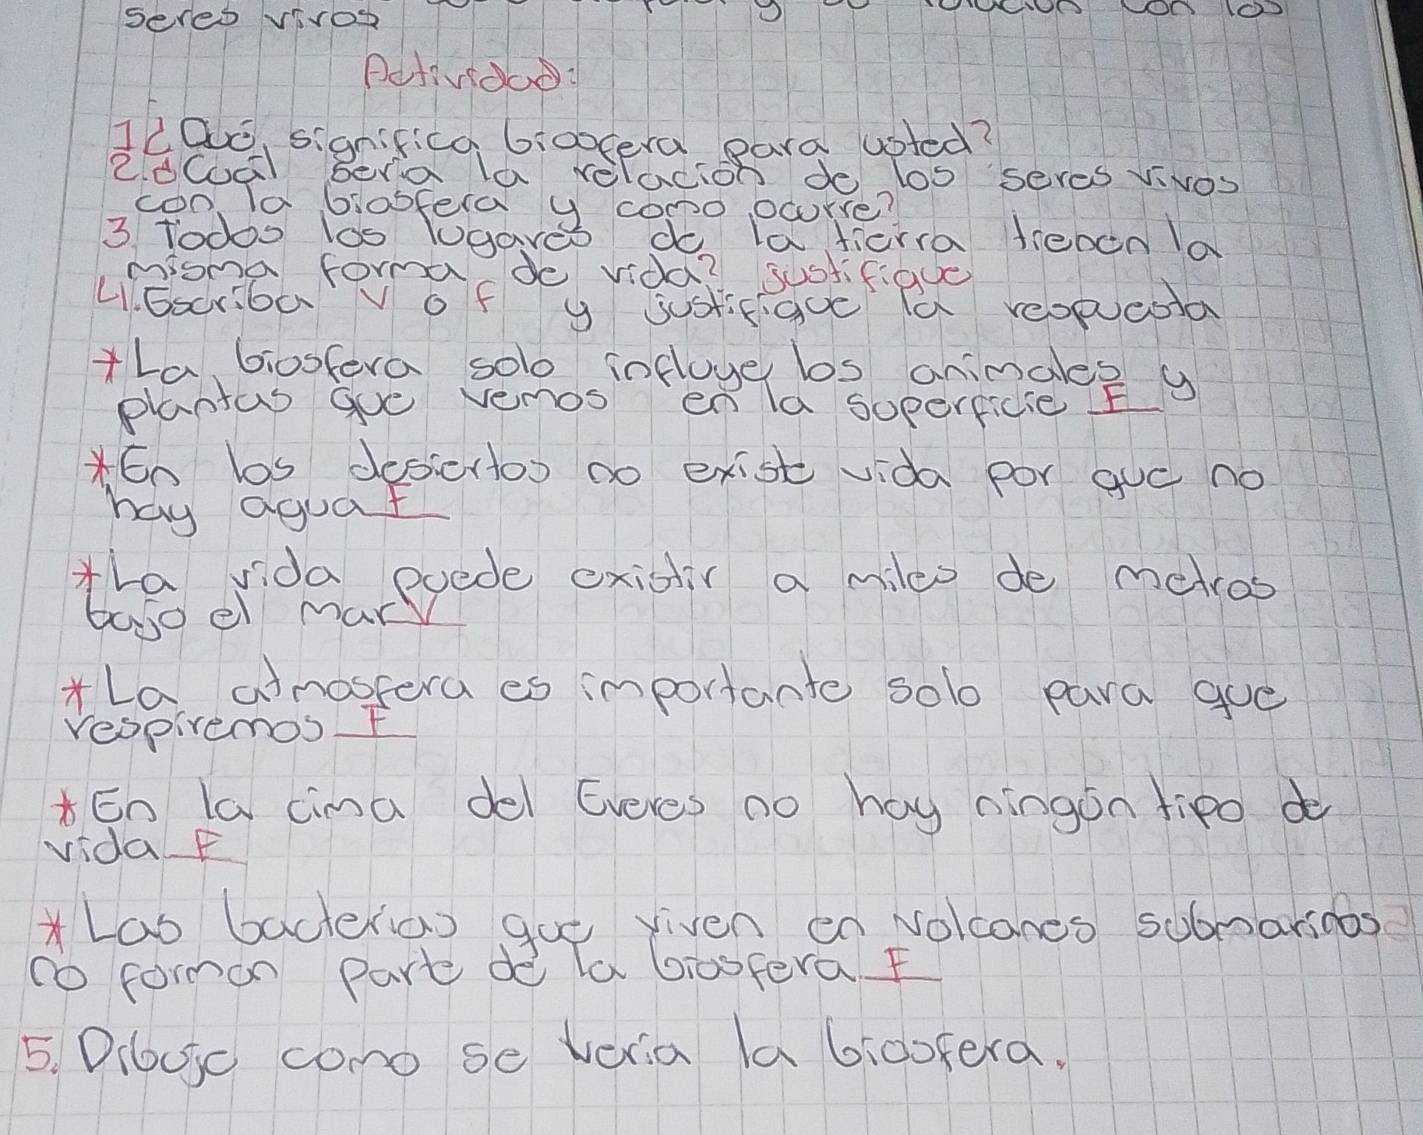 seres vivos con los
Actividad:
1¿Qué significa biosfera para usted?
2.¿Cuál seria la relación de los seres vivos
con la biosfera y como ocurre?
3 Todos los lugares de la tierra tienen la
misma forma de vida? justifique
4.Escriba V o F y justifique la respuesta
*La biosfera solo influye los animales y
plantas que vemos en la superficie F
*En los desiertos no existe vida por que no
hay agua F
*La vida puede existir a miles de metros
bajo el mar V
*La atmosfera es importante solo para que
respiremos F
*En la cima del Everes no hay ningún tipo de
vida F
*Las bacterias que viven en volcanes submarinos
no forman parte de la biosfera F
5. Dibuje como se veria la biosfera.